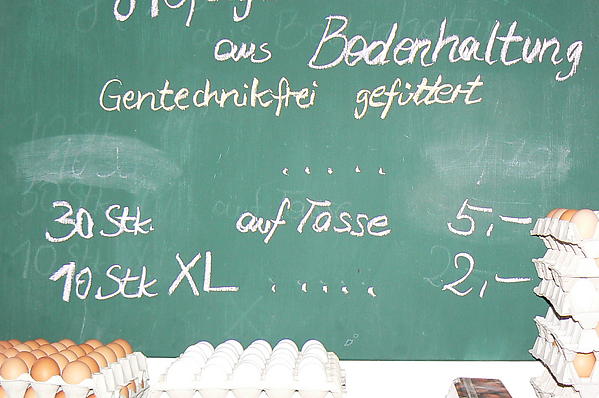 aus Bodenhaltung
Gentechnikfrei gefüttert
. . . . .
30 Stk. auf Tasse 5,-
10 Stk XL . . . . . 2,-